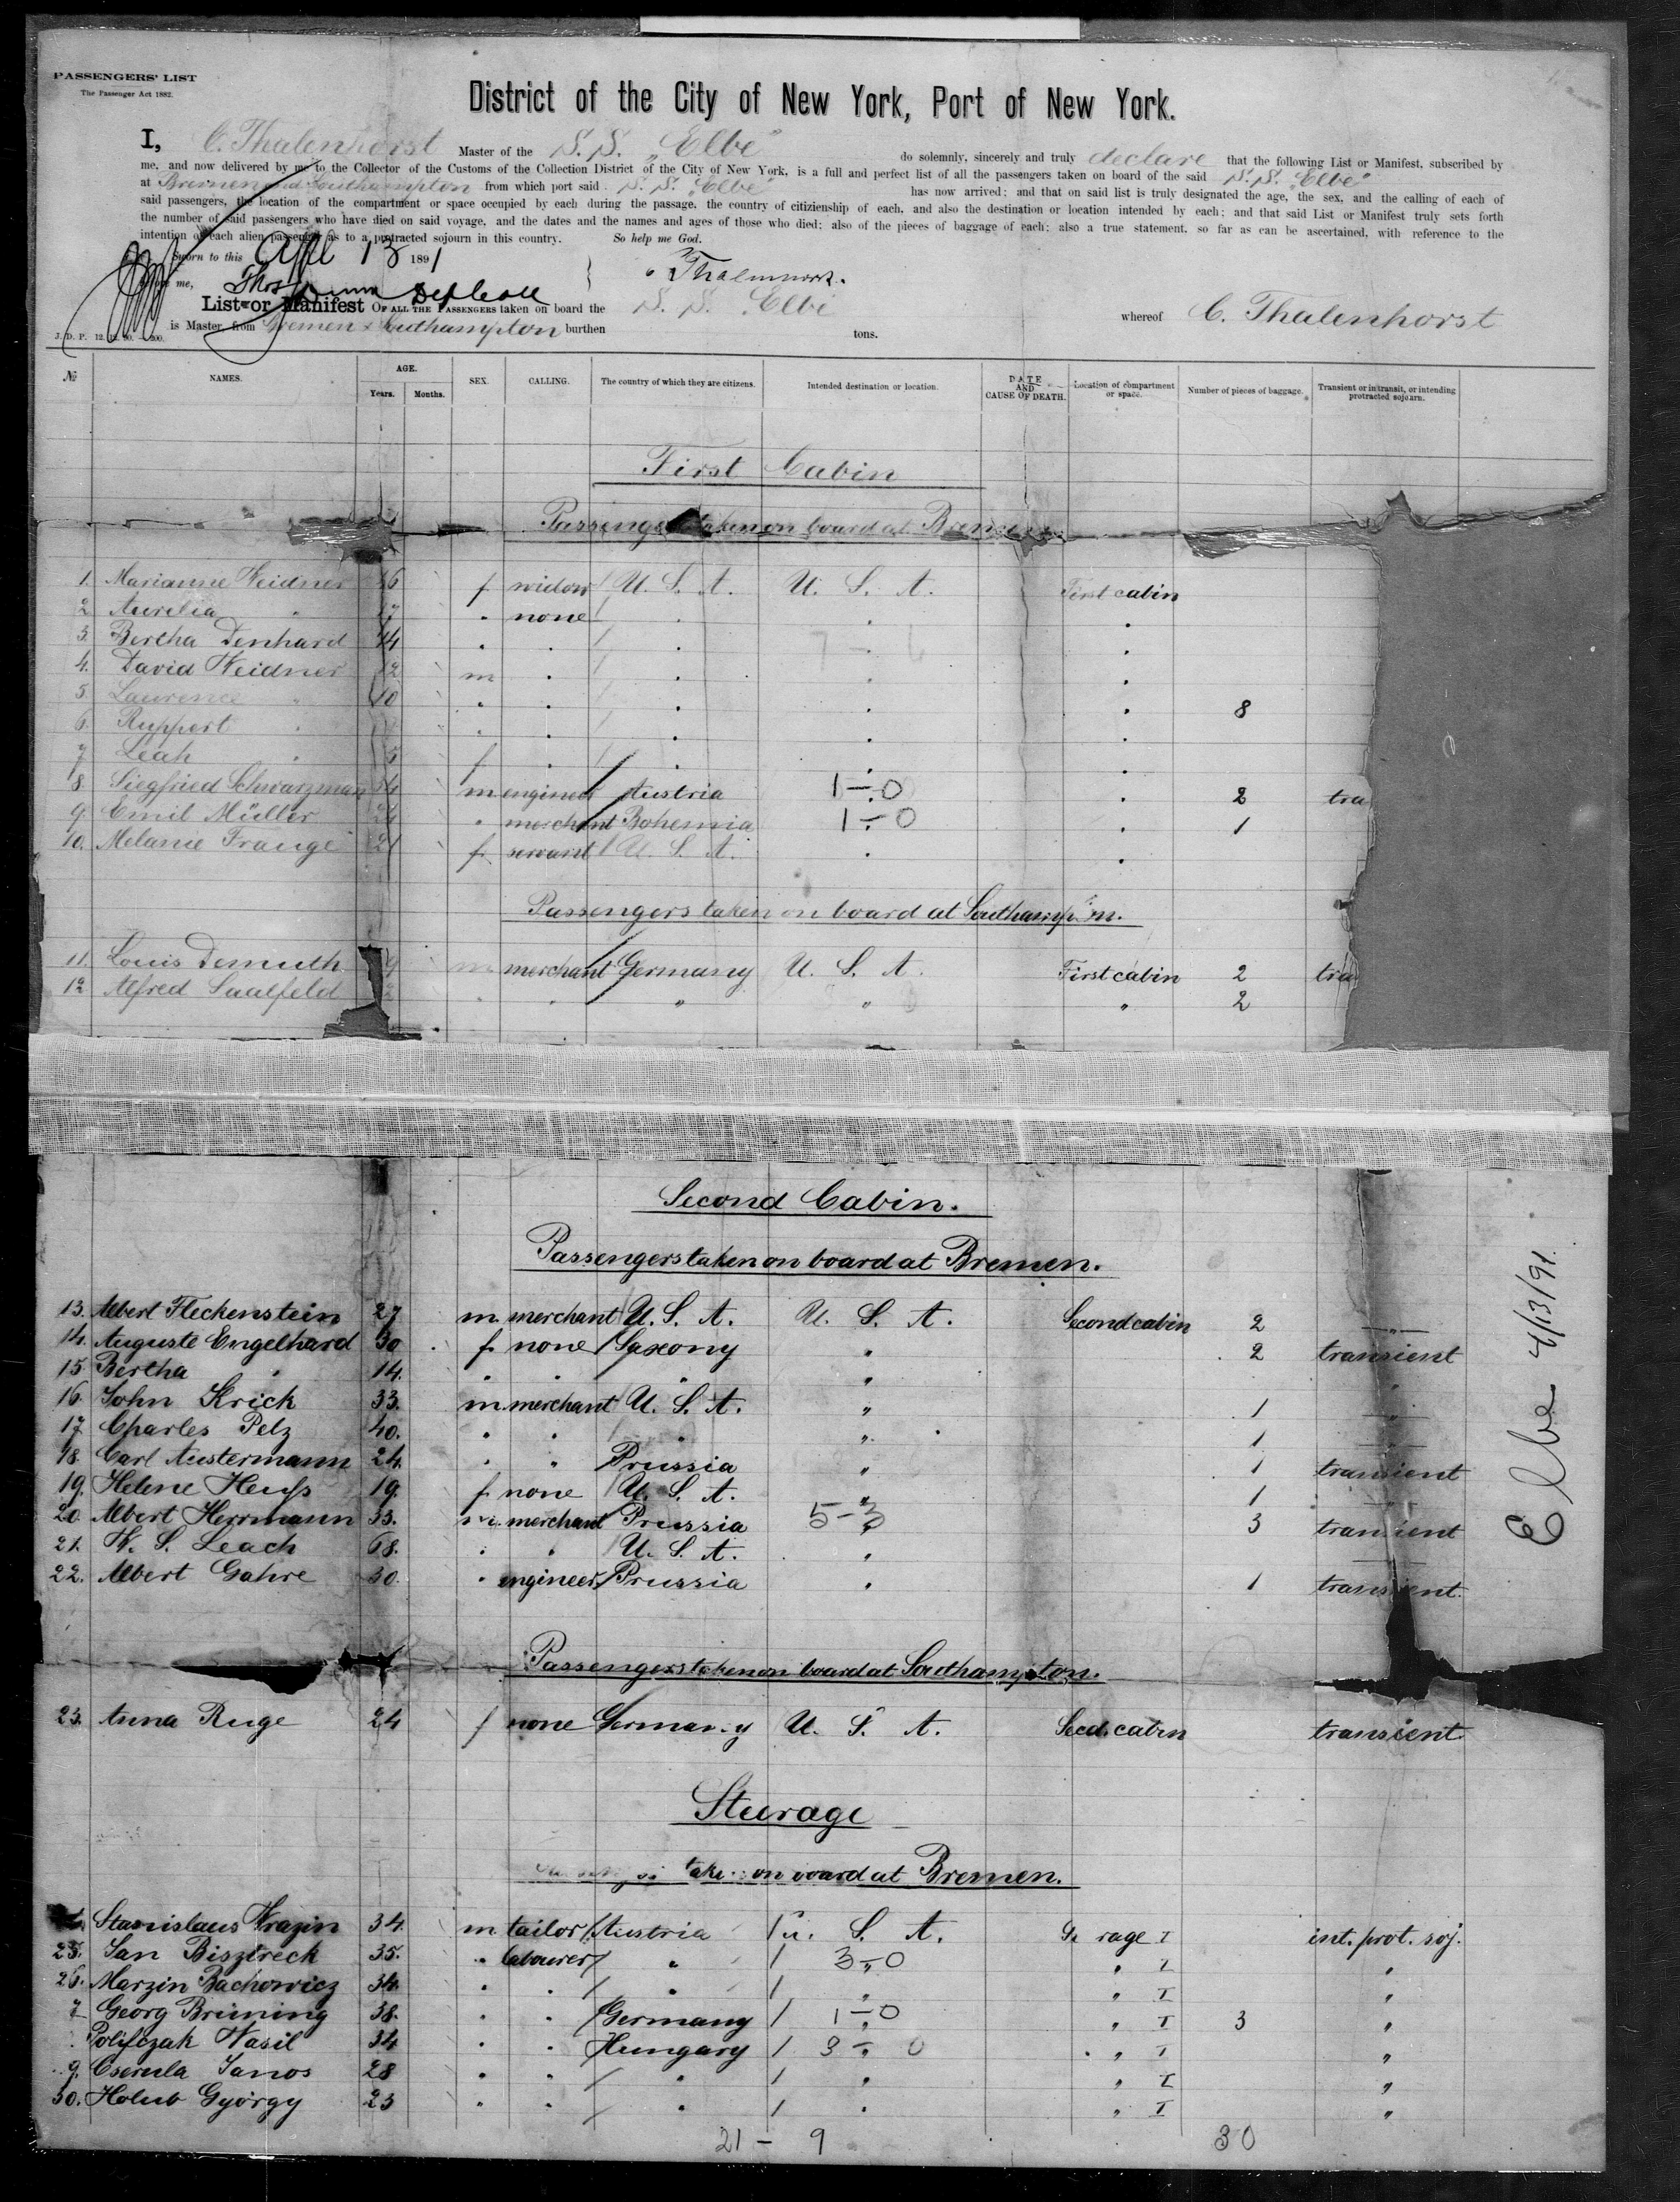 PASSENGERS' LIST
The Passenger Act 1882.
District of the City of New York, Port of New York.
I, C. Thalenhorst Master of the S. S. "Elbe" do solemnly, sincerely and truly declare that the following List or Manifest, subscribed by
me, and now delivered by me to the Collector of the Customs of the Collection District of the City of New York, is a full and perfect list of all the passengers taken on board of the said S. S. "Elbe"
at Bremen and Southampton from which port said S. S. "Elbe" has now arrived; and that on said list is truly designated the age, the sex, and the calling of each of
said passengers, the location of the compartment or space occupied by each during the passage, the country of citizienship of each, and also the destination or location intended by each; and that said List or Manifest truly sets forth
the number of said passengers who have died on said voyage, and the dates and the names and ages of those who died; also of the pieces of baggage of each; also a true statement, so far as can be ascertained, with reference to the
intention of each alien passenger as to a protracted sojourn in this country. So help me God.
Sworn to this April 13 1891
me, Thos Dunn Dep Coll C Thalenhorst.
List or Manifest OF ALL THE PASSENGERS taken on board the S. S. Elbe whereof C. Thalenhorst
is Master, from Bremen & Southampton burthen tons.
J. D. P. 12. 12. 90. 200.
№ NAMES. AGE. Years. Months. SEX. CALLING. The country of which they are citizens. Intended destination or location. DATE AND CAUSE OF DEATH. Location of compartment or space. Number of pieces of baggage. Transient or in transit, or intending protracted sojourn.
First Cabin
Passengers taken on board at Bremen
1. Marianne Weidner 46 f widow U. S. A. U. S. A. First cabin
2. Aurelia " " none " " "
3. Bertha Denhard 44 " " " " "
4. David Weidner 12 m " " " "
5. Laurence " 10 " " " " " 8
6. Ruppert " " " " " "
7. Leah " 5 f " " " "
8. Siegfried Schwarzman 54 m engineer Austria 1-0 " 2 tra
9. Emil Müller 24 " merchant Bohemia 1-0 " 1
10. Melanie Frangé 21 f servant U. S. A. " "
Passengers taken on board at Southampton.
11. Louis Demuth 9 m merchant Germany U. S. A. First cabin 2 tra
12. Alfred Saalfeld " " " " " 2
Second Cabin.
Passengers taken on board at Bremen.
13. Albert Fleckenstein 27 m merchant U. S. A. U. S. A. Second cabin 2 -"-
14. Auguste Engelhard 30 f none Saxony " 2 transient
15. Bertha " 14. " " " " "
16. John Krick 33. m merchant U. S. A. " 1 -"-
17. Charles Pelz 40. " " " " 1
18. Carl Austermann 24. " " Prussia " 1 transient
19. Helene Heuss 19. f none U. S. A. " 1
20. Albert Herrmann 33. m. merchant Prussia 5-3 3 transient
21. W. S. Leach 68. " " U. S. A. "
22. Albert Gahre 30. " engineer Prussia " 1 transient.
Elbe 4/13/91.
Passengers taken on board at Southampton.
23. Anna Ruge 24 f none Germany U. S. A. Secd. cabin transient
Steerage
taken on board at Bremen.
Stanislaus Wrazin 34. m tailor Austria U. S. A. St rage I int. prot. soj.
25. Jan Bisztreck 35. " labourer " 3-0 " I "
26. Marzin Bachowicz 34. " " " " " I "
7 Georg Brüning 38. " " Germany 1-0 " I 3 "
Polifczak Wasil 34 " " Hungary 3-0 " I "
9. Cserula Janos 28 " " " " " I "
30. Holub György 23 " " " " " I "
21 - 9 30